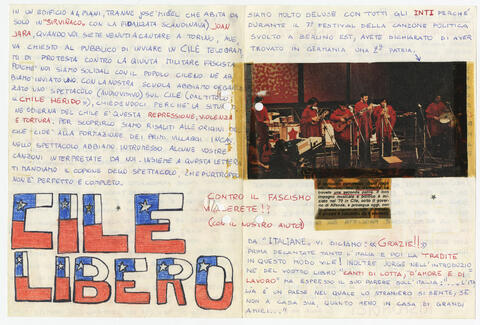 IN UN EDIFICIO A 4 PIANI, TRANNE JOSÈ MIGUEL CHE ABITA DA
SOLO IN "SIRVINALO, CON LA FIDANZATA SCANDINAVA) JOAN
JARA, QUANDO VOI SIETE VENUTI A CANTARE A TORINO, AVE
VA CHIESTO AL PUBBLICO DI INVIARE IN CILE TELEGRAM
MI DI PROTESTA CONTRO LA GIUNTA MILITARE FASCISTA
POICHÈ NOI SIAMO SOLIDALI CON IL POPOLO CILENO NE AB
BIAMO INVIATO UNO. CON LA NOSTRA SCUOLA ABBIAMO ORGANIZ
ZATO UNO SPETTACOLO (AUDIOVISIVO) SUL CILE (DAL TITOLO:
«CHILE HERIDO»), CHIEDENDOCI, PERCHÈ LA SITUAZIO
NE ODIERNA DEL CILE E' QUESTA: REPRESSIONE, VIOLENZA
E TORTURA. PER SCOPRIRLO SIAMO RISALITI ALLE ORIGINI DEL
CILE, CIOÈ ALLA FORMAZIONE DEI PRIMI VILLAGGI INCAS.
NELLO SPETTACOLO ABBIAMO INTROMESSO ALCUNE VOSTRE
CANZONI INTERPRETATE DA NOI. INSIEME A QUESTA LETTERA
TI MANDIAMO IL COPIONE DELLO SPETTACOLO, CHE PURTROPPO
NON È PERFETTO E COMPLETO.
CILE
LIBERO
CONTRO IL FASCISMO
VINCERETE!!
(CON IL NOSTRO AIUTO)
SIAMO MOLTO DELUSE CON TUTTI GLI INTI PERCHÈ
DURANTE IL 7º FESTIVAL DELLA CANZONE POLITICA
SVOLTO A BERLINO EST, AVETE DICHIARATO DI AVER
TROVATO IN GERMANIA UNA 2ª PATRIA.
DA "ITALIANE, VI DICIAMO: «GRAZIE!!»
PRIMA DECANTATE TANTO L'ITALIA E POI LA TRADITE
IN QUESTO MODO VILE! INOLTRE JORGE NELL'INTRODUZIO
NE DEL VOSTRO LIBRO "CANTI DI LOTTA, D'AMORE E DI
LAVORO" HA ESPRESSO IL SUO PARERE SULL'ITALIA: "...L'ITA
LIA È UN PAESE NEL QUALE LO STRANIERO SI SENTE, SE
NON A CASA SUA, QUANTO MENO IN CASA DI GRANDI
AMICI..."